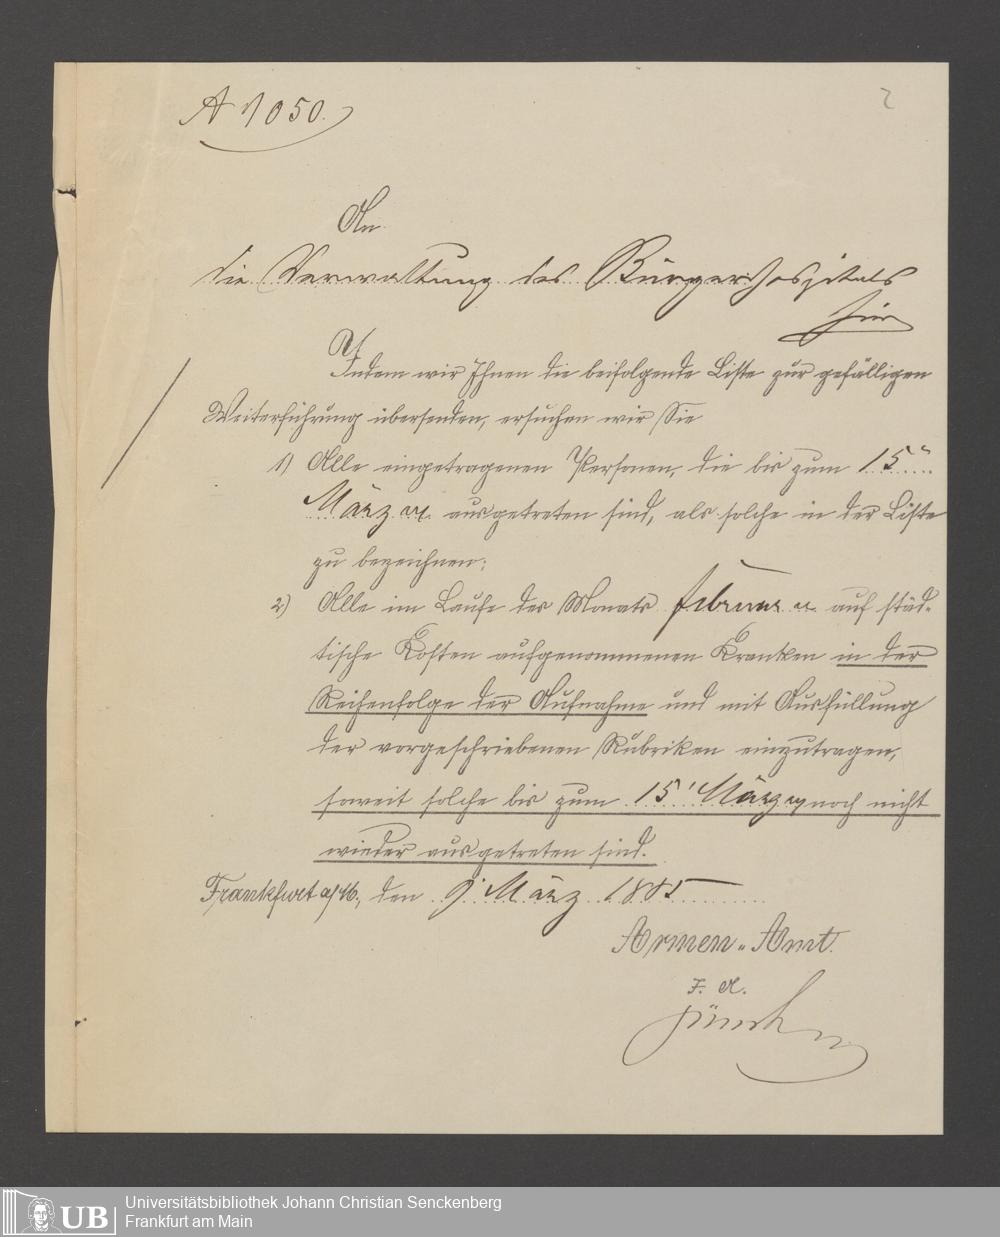 A 1050.
2
An
die Verwaltung des Bürgerhospitals
hier
Indem wir Ihnen die beifolgende Liste zur gefälligen
Weiterführung übersenden, ersuchen wir Sie
1) Alle eingetragenen Personen, die bis zum 15
März ausgetreten sind, als solche in der Liste
zu bezeichnen;
2) Alle im Laufe des Monats Februar auf städ-
tische Kosten aufgenommenen Kranken in der
Reihenfolge der Aufnahme und mit Ausfüllung
der vorgeschriebenen Rubriken einzutragen,
soweit solche bis zum 15 März noch nicht
wieder ausgetreten sind.
Frankfurt a/M., den 9 März 1885
Armen-Amt.
I. A.
UB
Universitätsbibliothek Johann Christian Senckenberg
Frankfurt am Main